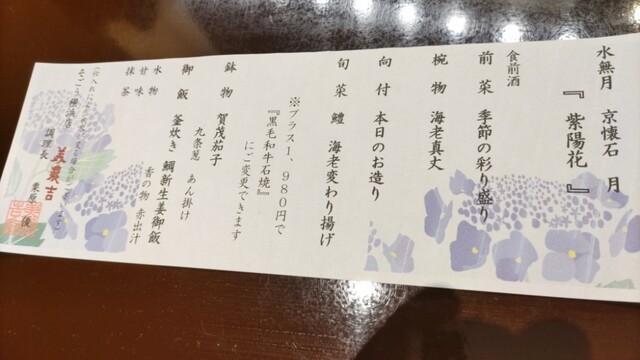 水無月　京懐石　月
『紫陽花』
食前酒
前菜　季節の彩り盛り
椀物　海老真丈
向付　本日のお造り
旬菜　鱧　海老変わり揚げ
※プラス1、980円で
『黒毛和牛石焼』
にご変更できます
鉢物　賀茂茄子
九条葱　あん掛け
御飯　釜炊き　鯛新生姜御飯
香の物　赤出汁
水物
甘味
抹茶
そごう横浜店　美濃吉
調理長　栗原